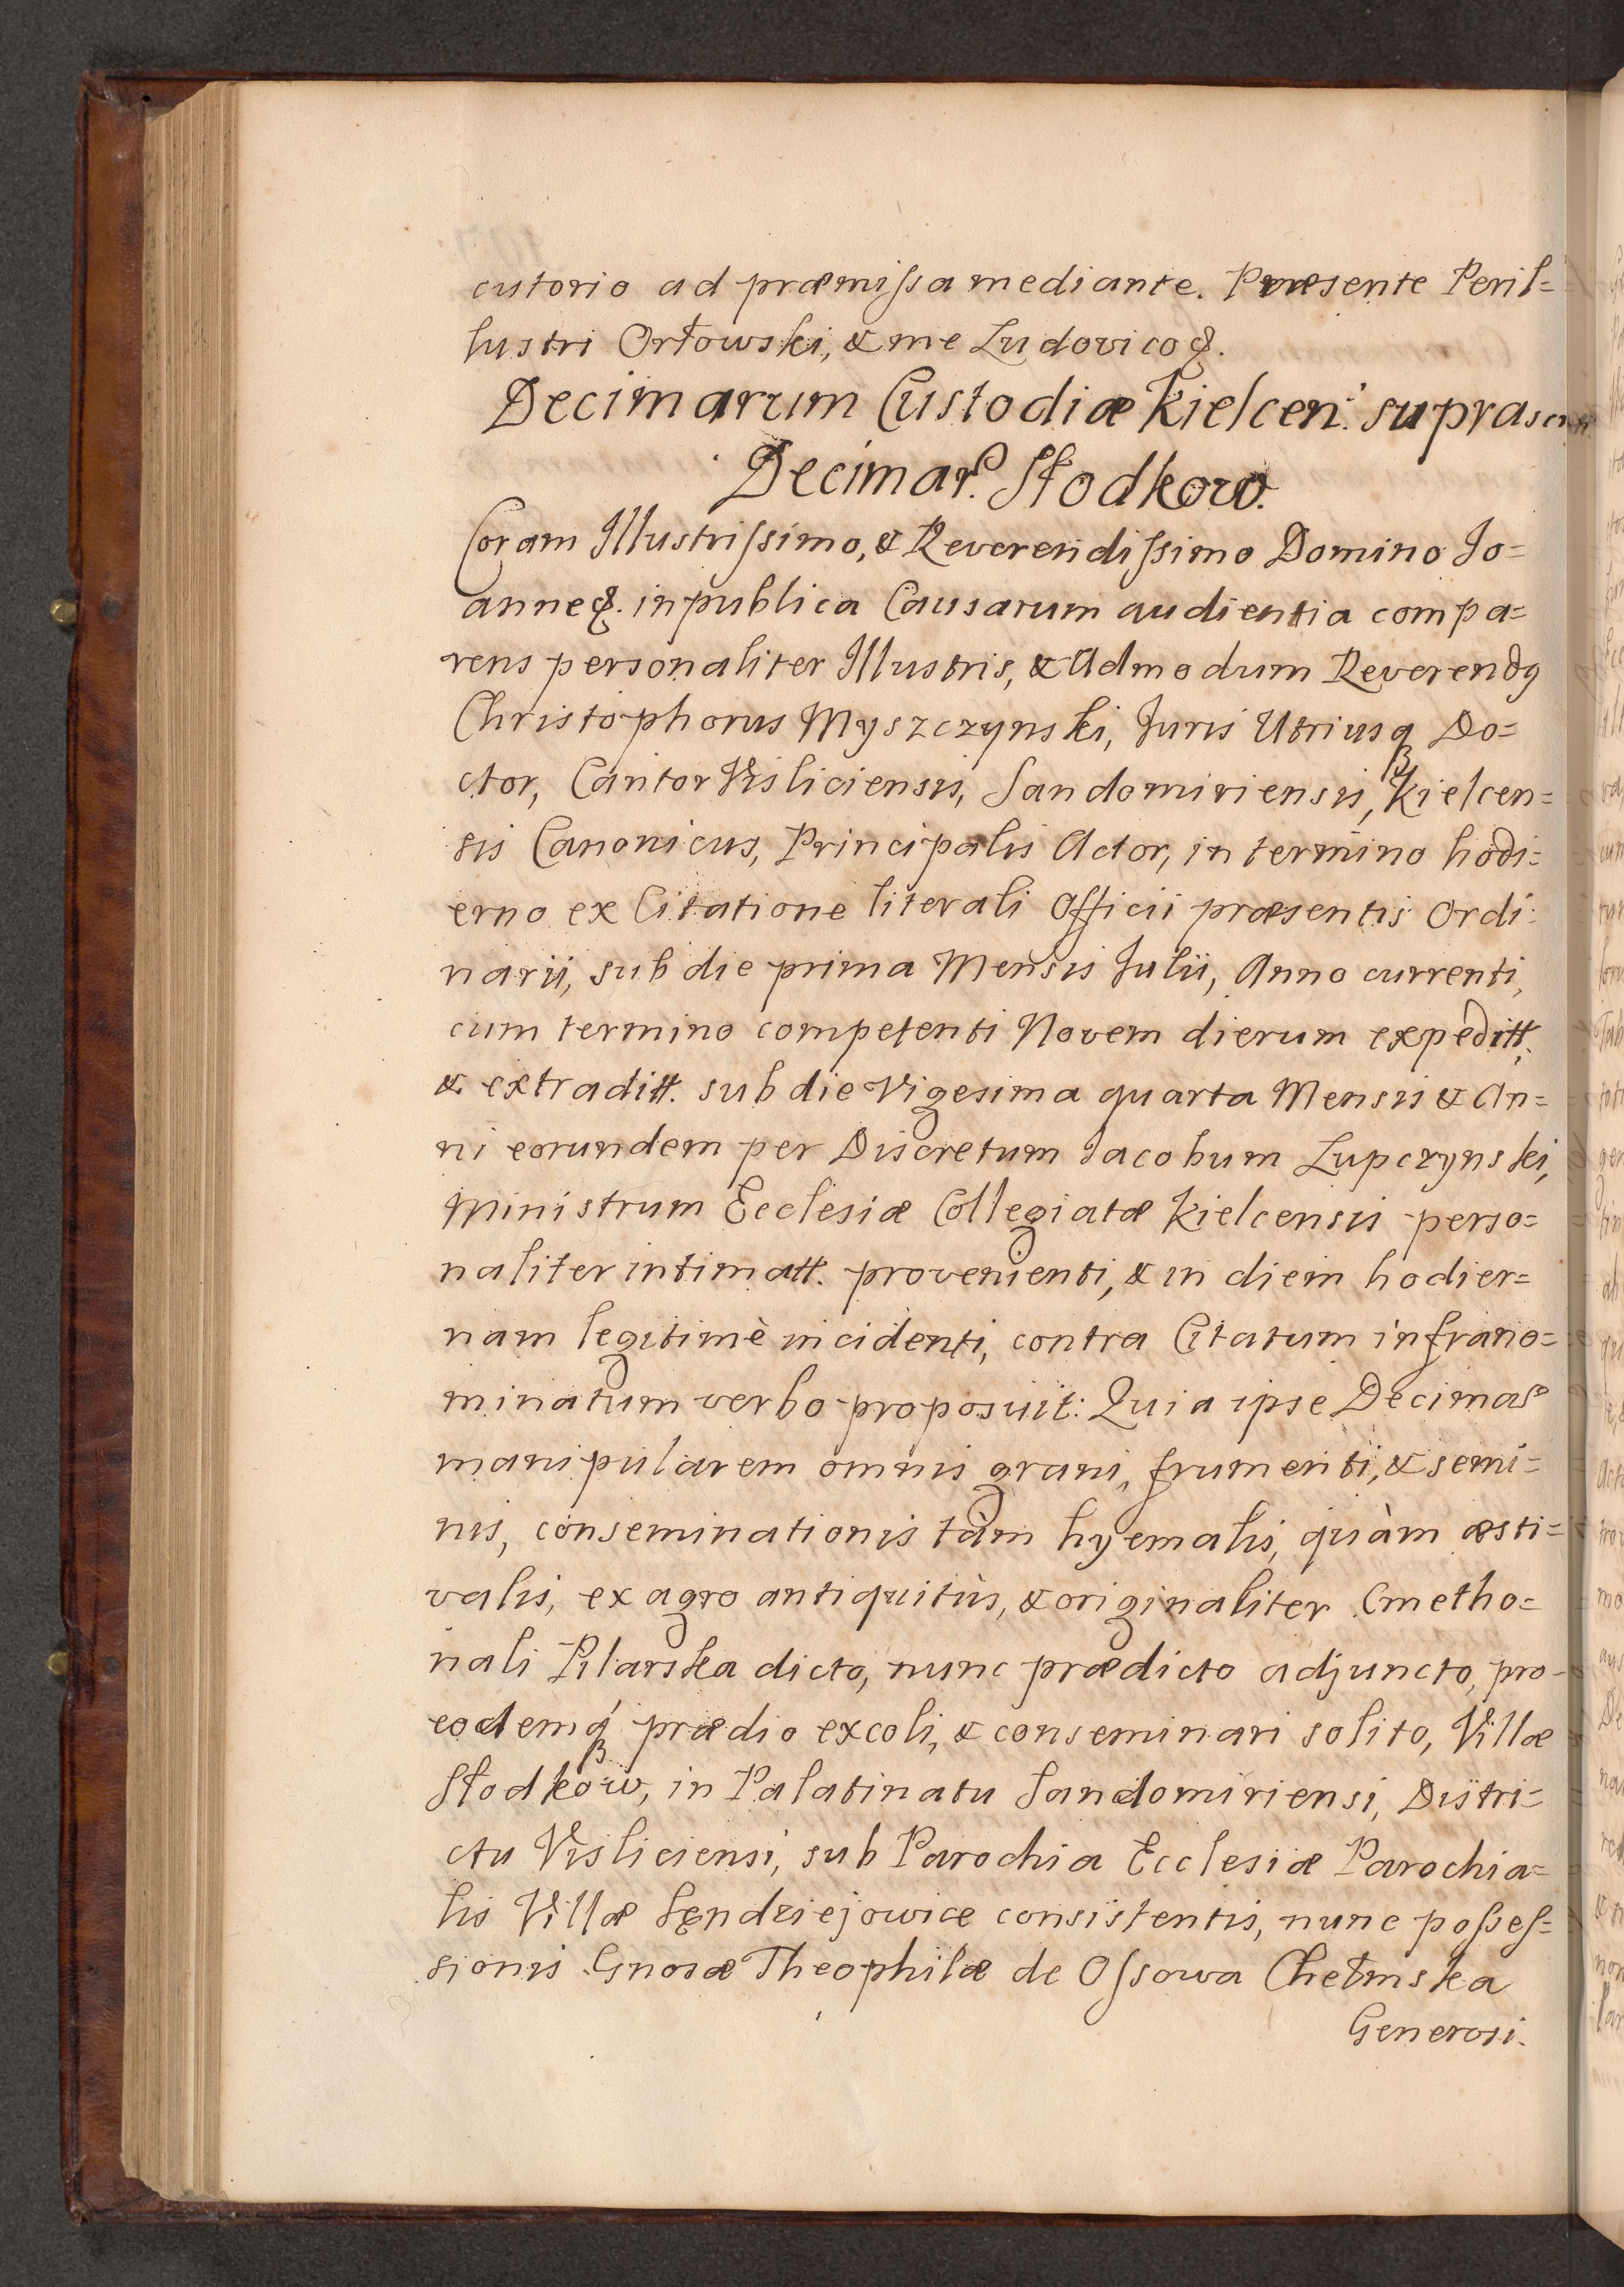 cutorio ad præmiſsa mediante. Præsente Peril=
lustri Orłowski, & me Ludovico &.
Decimarum Custodiæ Kielcen: suprascr
Decimar. Słodkow.
Coram Illustriſsimo, & Reverendiſsimo Domino Jo=
anne &. in publica Causarum audientia compa=
rens personaliter Illustris, & Admodum Reverendꝰ
Christophorus Myszczynski, Juris Utriusqꝫ Do=
ctor, Cantor Visliciensis, Sandomiriensis, Kielcen=
sis Canonicus, Principalis Actor, in termino hodi=
erno ex Citatione literali Officii præsentis Ordi=
narii, sub die prima Mensis Julii, Anno currenti,
cum termino competenti Novem dierum expeditt.
& extraditt. sub die Vigesima quarta Mensis & An=
ni eorundem per Discretum Jacobum Lupczynski,
Ministrum Ecclesiæ Collegiatæ Kielcensis perso=
naliter intimatt. provenienti, & in diem hodier=
nam legitimè incidenti, contra Citatum infrano=
minatum verbo proposuit: Quia ipse Decimas
manipularem omnis grani, frumenti, & semi=
nis, conseminationis tàm hyemalis, quàm æsti=
valis, ex agro antiquitùs, & originaliter Cmetho=
nali Pilarska dicto, nunc prædicto adjuncto, pro
eodemqꝫ prædio excoli, & conseminari solito, Villæ
Słodków, in Palatinatu Sandomiriensi, Distri=
ctu Visliciensi, sub Parochia Ecclesiæ Parochia=
lis Villæ Sęndziejowice consistentis, nunc poſseſ=
sionis Gnosæ Theophilæ de Oſsowa Chełmska
Generosi.